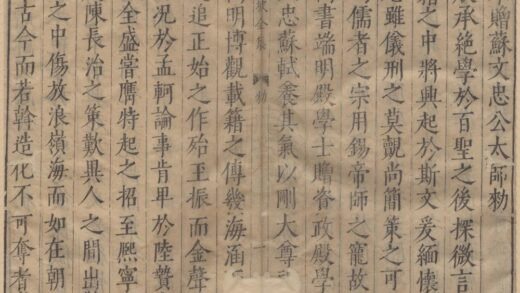 贈蘇文忠公太師勑
朕承絕學於百聖之後探微言
籍之中將興起於斯文爰緬懷
雖儀刑之莫覿尚簡策之可
儒者之宗用錫帝師之寵故
書端明殿學士贈資政殿學
忠蘇軾養其氣以剛大尊
全集 勑 一
高明博觀載籍之傳幾海涵
追正始之作殆玉振而金聲
況於孟軻論事肯卑於陸贄
全盛嘗膺特起之招至熙寧
陳長治之策歎異人之間出
之中傷放浪嶺海而如在朝
古今而若斡造化不可奪者